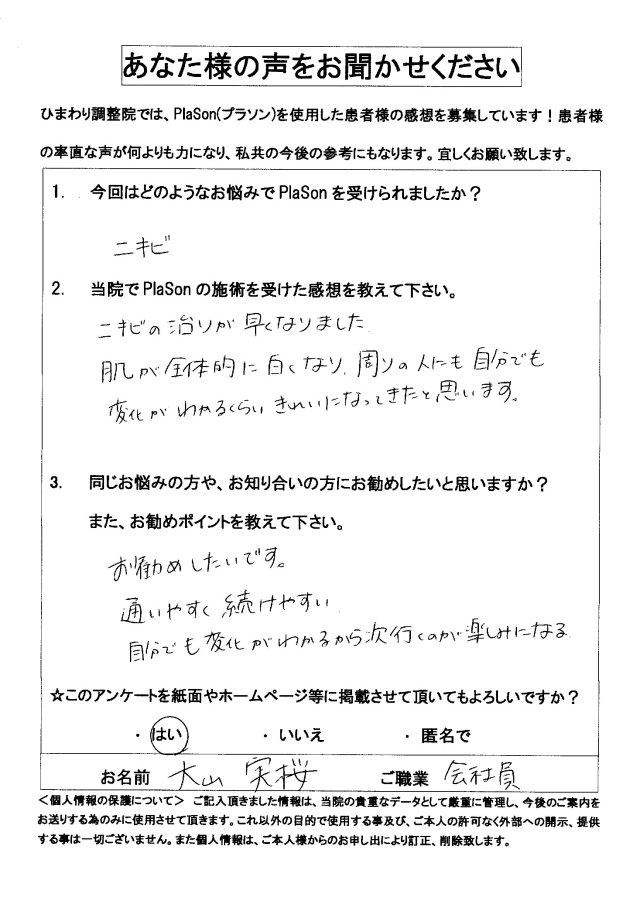 あなた様の声をお聞かせください
ひまわり調整院では、PlaSon(プラソン)を使用した患者様の感想を募集しています！患者様
の率直な声が何よりも力になり、私共の今後の参考にもなります。宜しくお願い致します。
1. 今回はどのようなお悩みで PlaSon を受けられましたか？
ニキビ
2. 当院で PlaSon の施術を受けた感想を教えて下さい。
ニキビの治りが早くなりました
肌が全体的に白くなり、周りの人にも自分でも
変化がわかるくらいきれいになってきたと思います。
3. 同じお悩みの方や、お知り合いの方にお勧めしたいと思いますか？
また、お勧めポイントを教えて下さい。
お勧めしたいです。
通いやすく続けやすい
自分でも変化がわかるから次行くのが楽しみになる
☆このアンケートを紙面やホームページ等に掲載させて頂いてもよろしいですか？
・はい ・いいえ ・匿名で
お名前 大山 実桜 ご職業 会社員
＜個人情報の保護について＞ ご記入頂きました情報は、当院の貴重なデータとして厳重に管理し、今後のご案内を
お送りする為のみに使用させて頂きます。これ以外の目的で使用する事及び、ご本人の許可なく外部への開示、提供
する事は一切ございません。また個人情報は、ご本人様からのお申し出により訂正、削除致します。